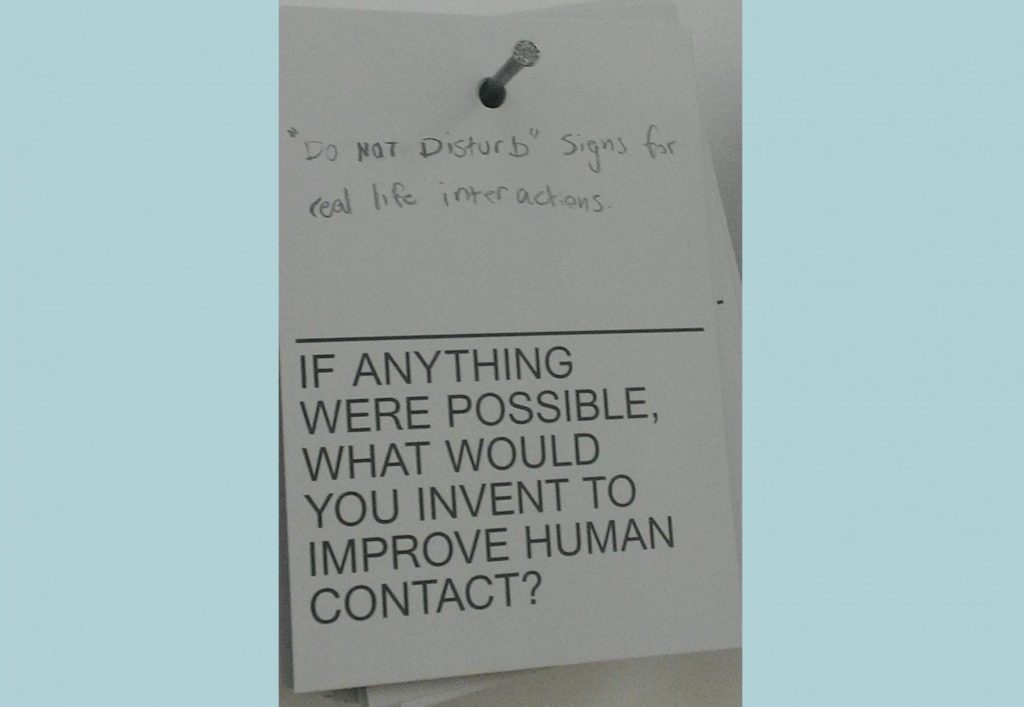 "Do NOT Disturb" Signs for
real life interactions.
IF ANYTHING
WERE POSSIBLE,
WHAT WOULD
YOU INVENT TO
IMPROVE HUMAN
CONTACT?